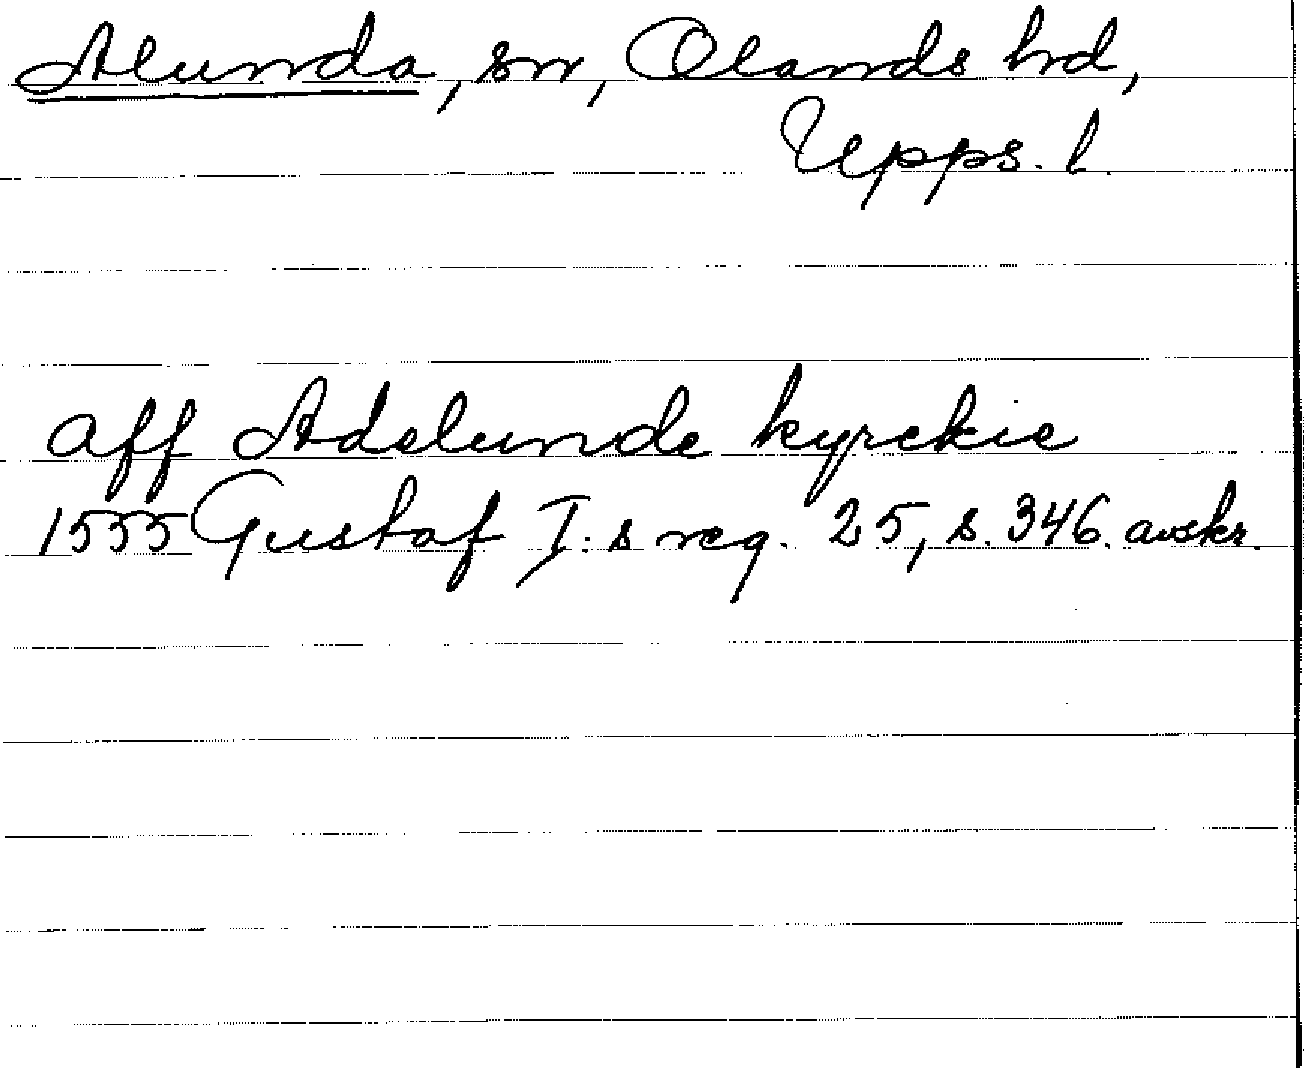 Alunda, sn, Olands hd,
Upps. l.
aff Adelunde kyrckie
1555 Gustaf I:s reg. 25, s. 346. avskr.